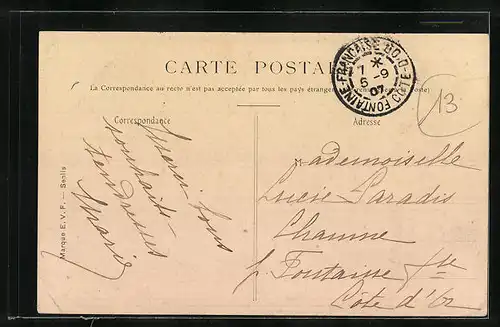 CARTE POSTALE
(La Correspondance au recto n'est pas acceptée par tous les pays étrangers
Correspondance
Adresse
FONTAINE-FRANÇAISE
CÔTE-D'OR
*
7
6 -9
07
13
souhaits
tendresses
Marie
Mademoiselle
Lucie Paradis
Chaume
p. Fontaine fse
Côte d'Or
Marque E. V. P. — Senlis